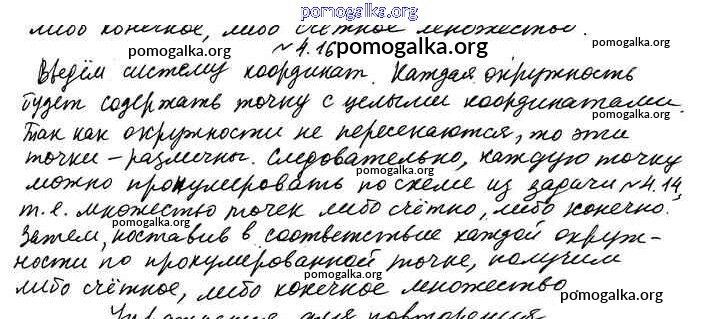 pomogalka.org
либо конечное, либо счётное множество.
pomogalka.org
№4.16 pomogalka.org
pomogalka.org
Введём систему координат. Каждая окружность
pomogalka.org
будет содержать точку с целыми координатами.
pomogalka.org
Так как окружности не пересекаются, то эти
точки – различны. Следовательно, каждую точку
pomogalka.org
можно пронумеровать по схеме из задачи №4.14,
т.е. множество точек либо счётно, либо конечно.
pomogalka.org
Затем, поставив в соответствие каждой окруж-
ности по пронумерованной точке, получим
pomogalka.org
либо счётное, либо конечное множество.
pomogalka.org
Упражнения для повторения